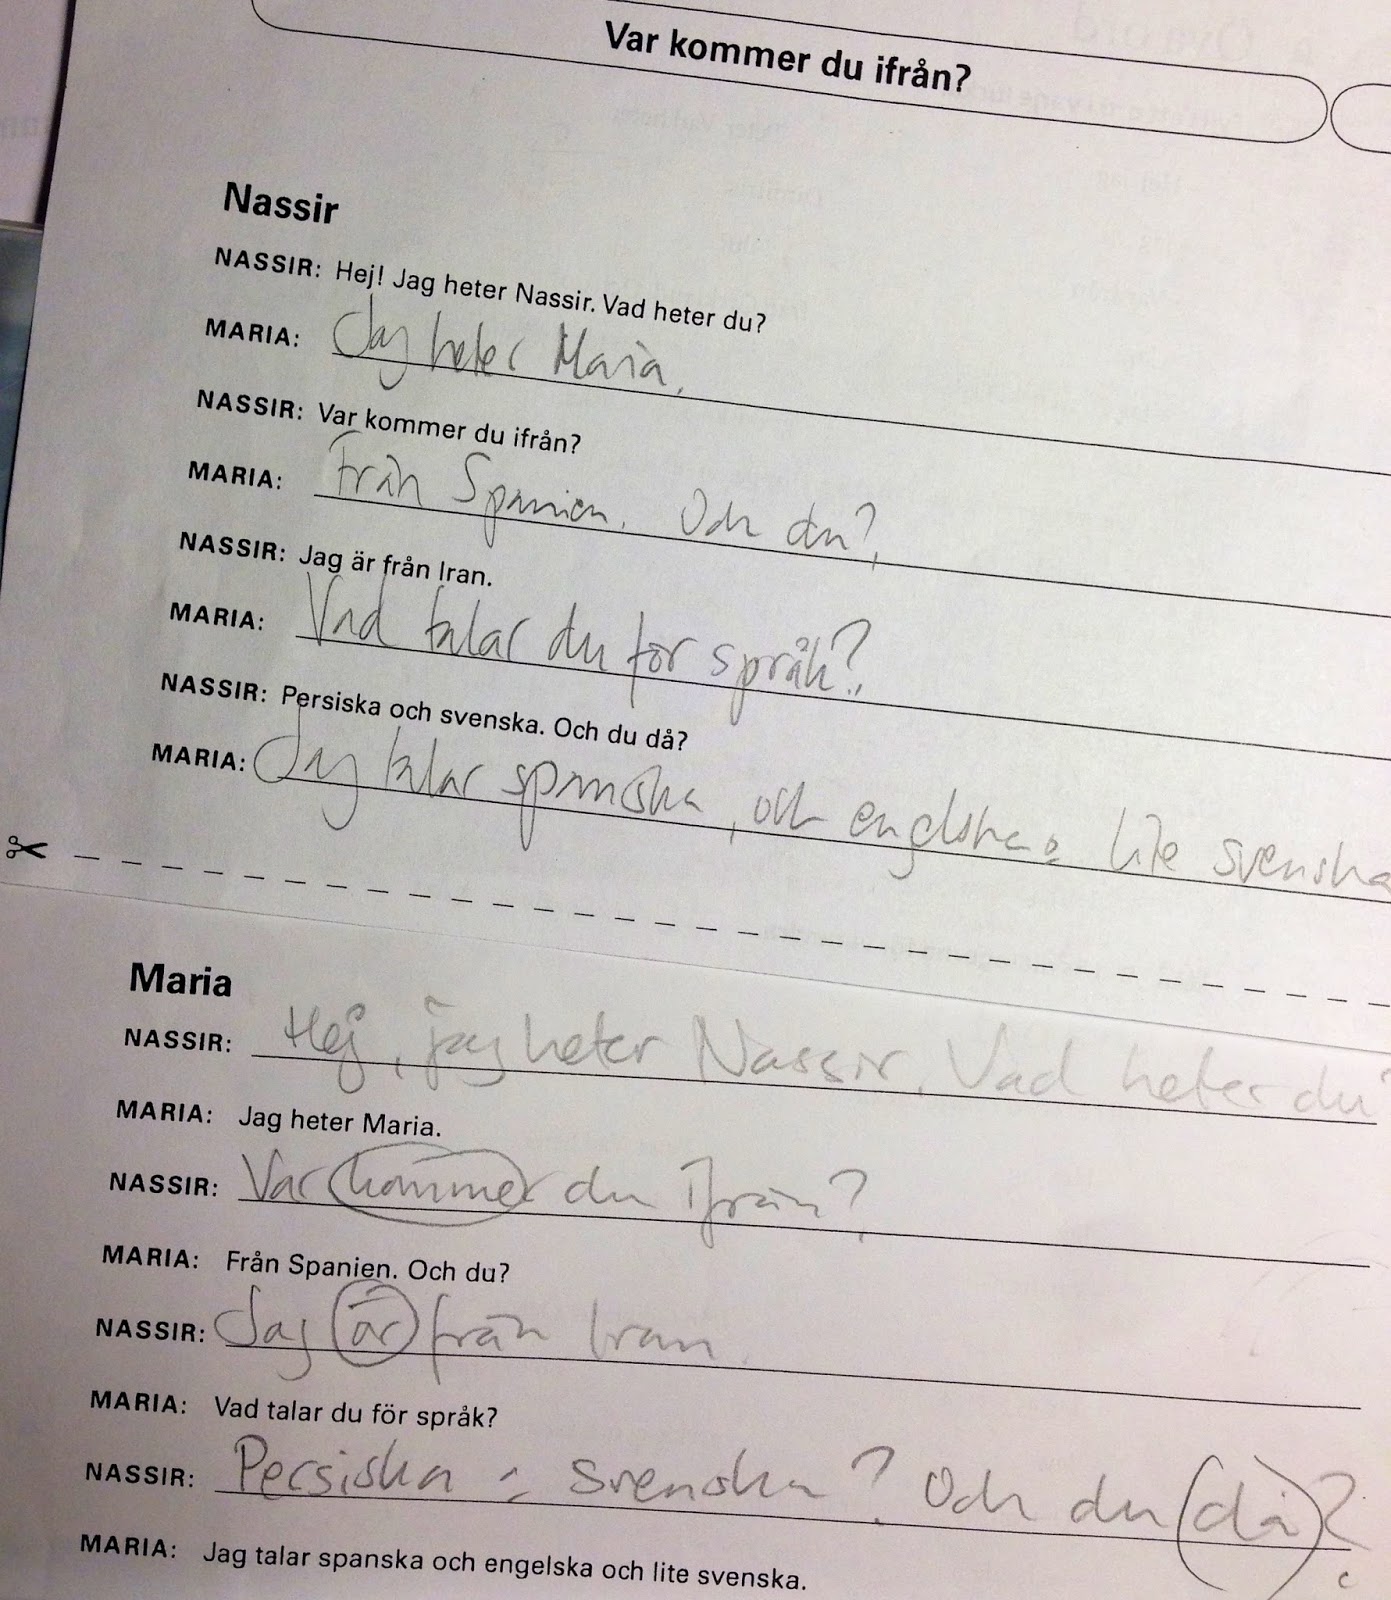 Var kommer du ifrån?
Nassir
NASSIR: Hej! Jag heter Nassir. Vad heter du?
MARIA: Jag heter Maria.
NASSIR: Var kommer du ifrån?
MARIA: Från Spanien. Och du?
NASSIR: Jag är från Iran.
MARIA: Vad talar du för språk?
NASSIR: Persiska och svenska. Och du då?
MARIA: Jag talar spanska, och engelska o lite svenska
Maria
NASSIR: Hej, jag heter Nassir. Vad heter du?
MARIA: Jag heter Maria.
NASSIR: Var kommer du ifrån?
MARIA: Från Spanien. Och du?
NASSIR: Jag är från Iran.
MARIA: Vad talar du för språk?
NASSIR: Persiska svenska? Och du då?
MARIA: Jag talar spanska och engelska och lite svenska.